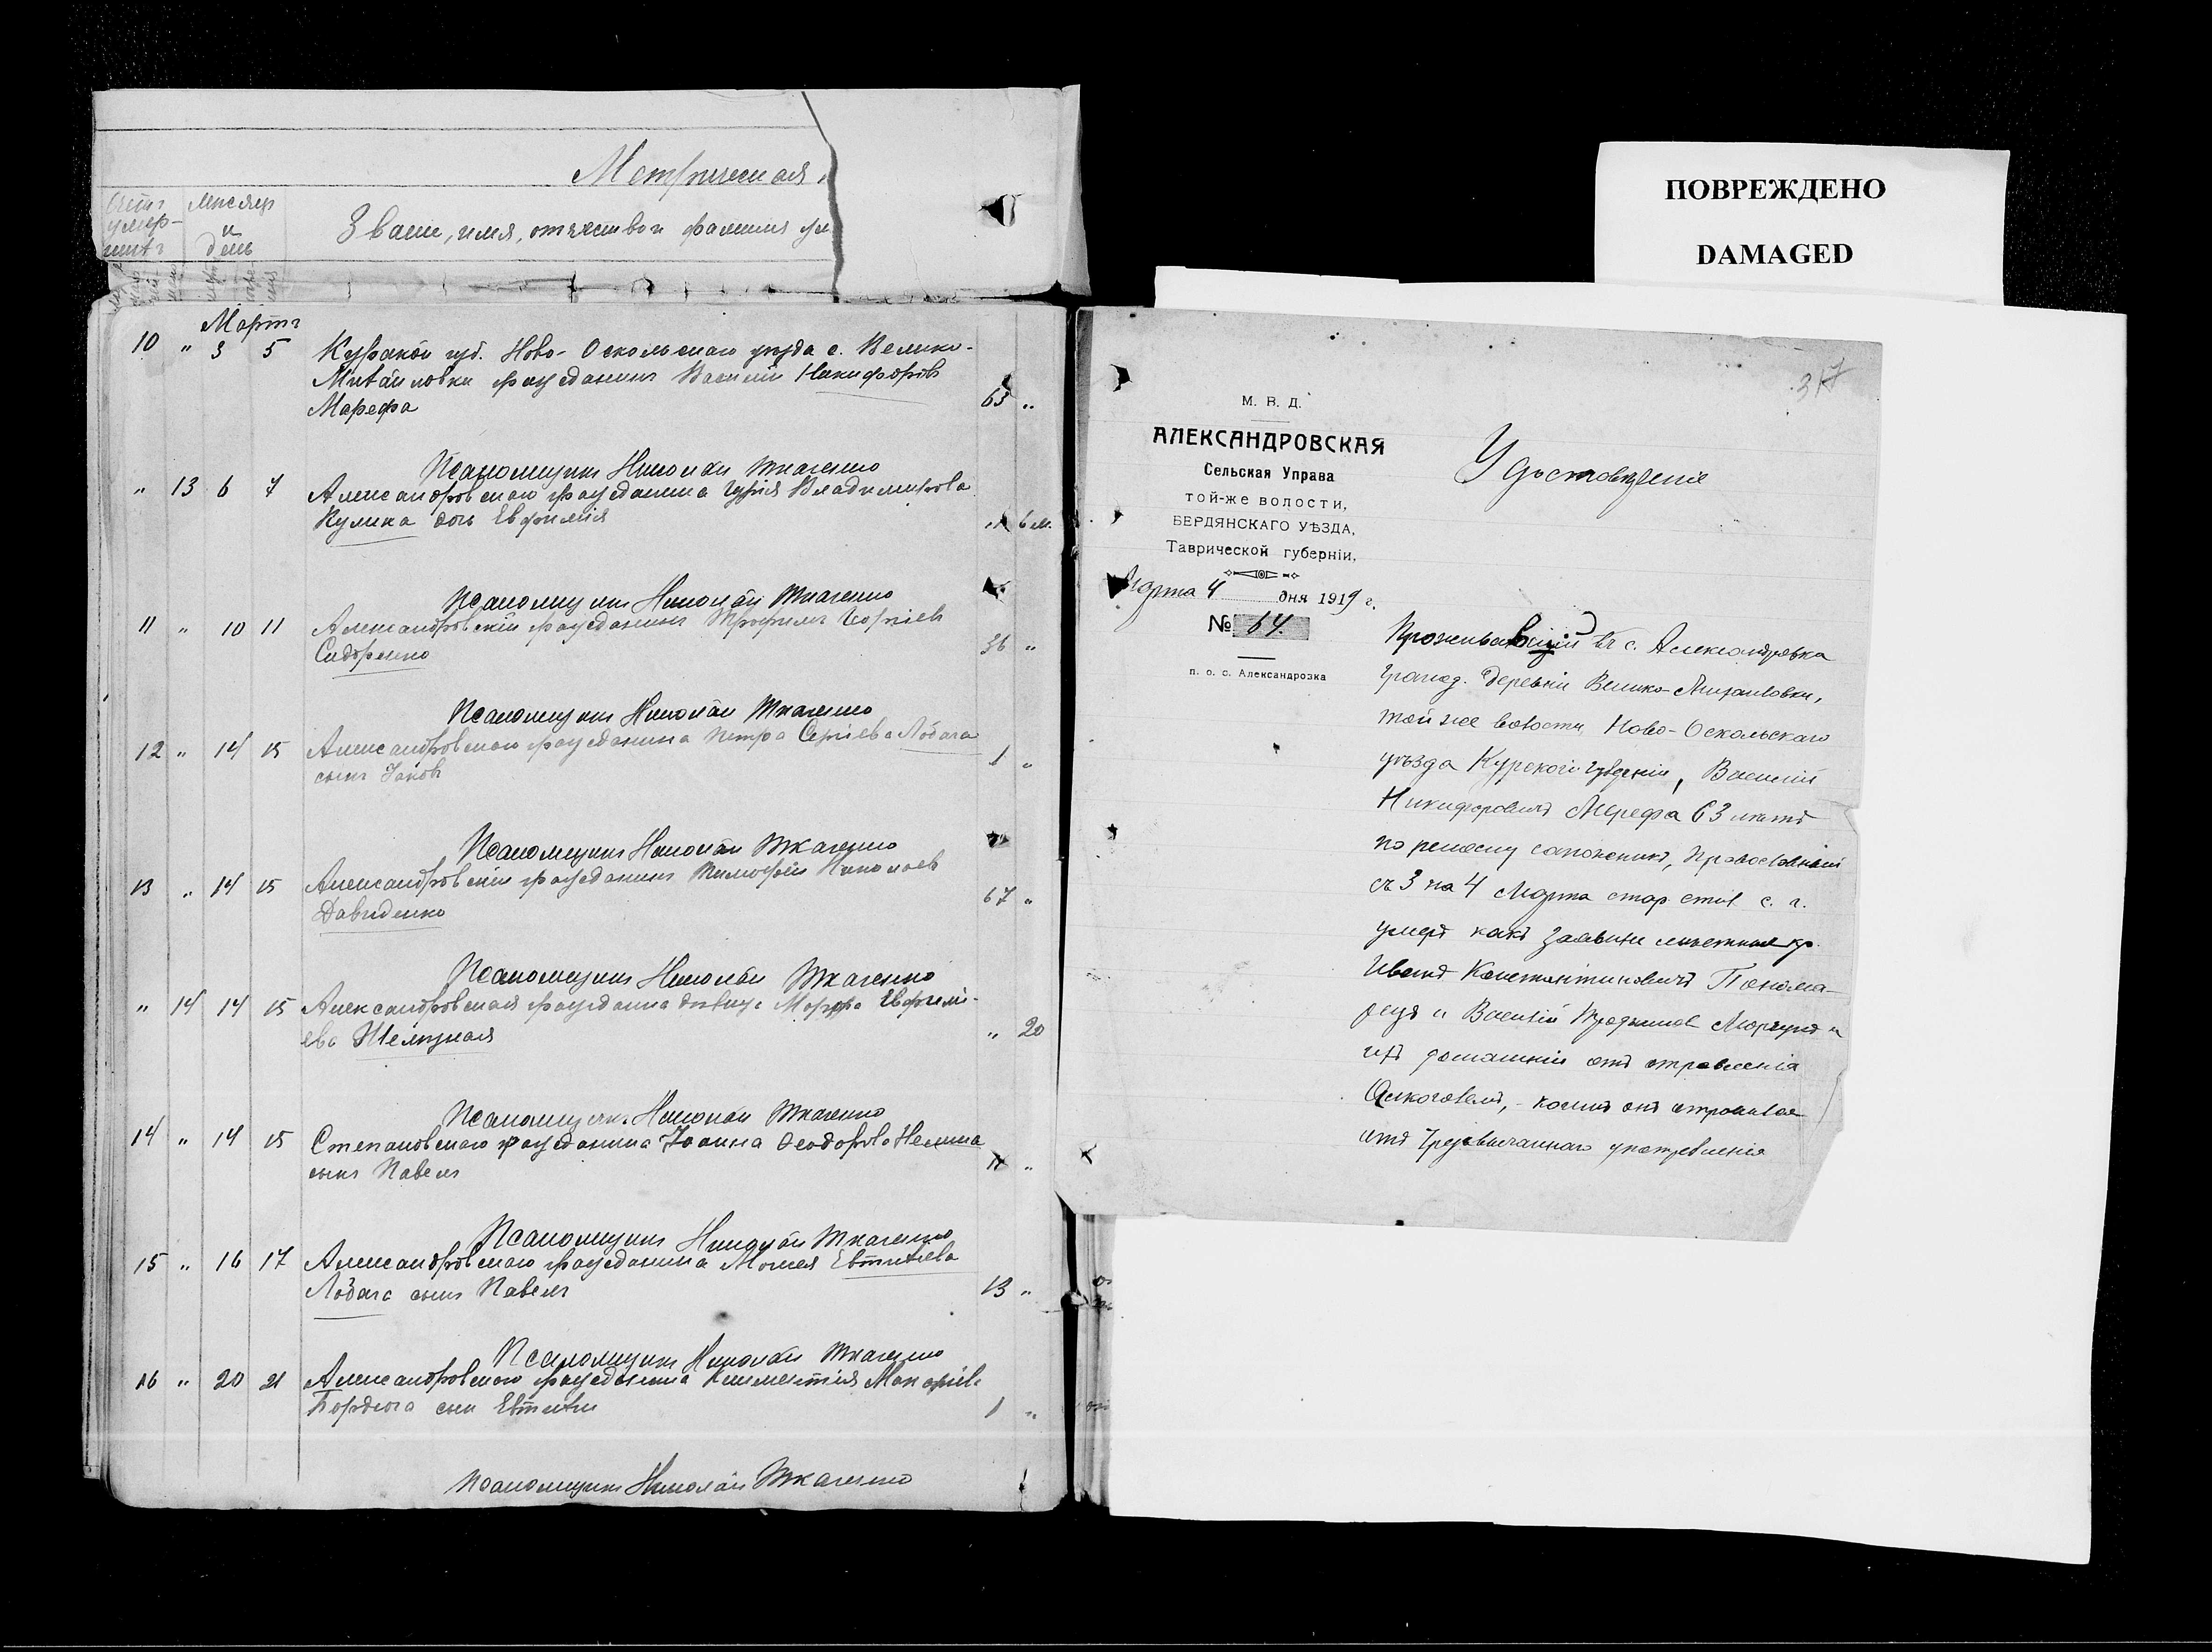 Метрическая
Счетъ умер-шихъ
Месяцъ и день
Званіе, имя, отчество и фамилія ум
Мартъ
10 " 3 5 Курской губ. Ново-Оскольскаго уезда с. Велико-
Михайловки гражданинъ Василій Никифоровъ
Марефа 63 "
Псаломщикъ Николай Ткаченко
" 13 6 7 Александровскаго гражданина Гурія Владимирова
Кулика дочь Евфимія " 6 м.
Псаломщикъ Николай Ткаченко
11 " 10 11 Александровскій гражданинъ Трофимъ Георгіевъ
Сидоренко 36 "
Псаломщикъ Николай Ткаченко
12 " 14 15 Александровскаго гражданина Петра Сергіева Лобача
сынъ Іаковъ 1 "
Псаломщикъ Николай Ткаченко
13 " 14 15 Александровскій гражданинъ Тимофей Николаевъ
Давиденко 67 "
Псаломщикъ Николай Ткаченко
" 14 14 15 Александровская гражданка девица Марфа Евфимі-
ева Шелудкая " 20
Псаломщикъ Николай Ткаченко
14 " 14 15 Степановскаго гражданина Іоанна Феодорова Нелина
сынъ Павелъ "
Псаломщикъ Николай Ткаченко
15 " 16 17 Александровскаго гражданина Моисея Евтихіева
Лобача сынъ Павелъ 13 "
Псаломщикъ Николай Ткаченко
16 " 20 21 Александровскаго гражданина Климентія Макаріева
Бордюга сын Евтихій 1 "
Псаломщикъ Николай Ткаченко
ПОВРЕЖДЕНО
DAMAGED
317
М. В. Д.
АЛЕКСАНДРОВСКАЯ
Сельская Управа
той-же волости,
БЕРДЯНСКАГО УѢЗДА,
Таврической губерніи.
Марта 4 дня 1919 г.
№ 64.
п. о. с. Александровка
Удостовѣреніе
Проживавшій въ с. Александровка
гражд. деревни Велико-Михайловки,
той же волости, Ново-Оскольскаго
уѣзда Курской губерніи, Василій
Никифоровичъ Мерефа 63 летъ
по ремеслу сапожникъ, православный
съ 3 на 4 Марта стар стил с. г.
умеръ какъ заявили местные гр.
Иванъ Константиновичъ Понома-
ренко и Василій Трофимов Моргунъ и
ихъ домашніе отъ отравленія
Алкоголемъ, - коимъ онъ отравился
отъ Чрезвычайнаго употребленія